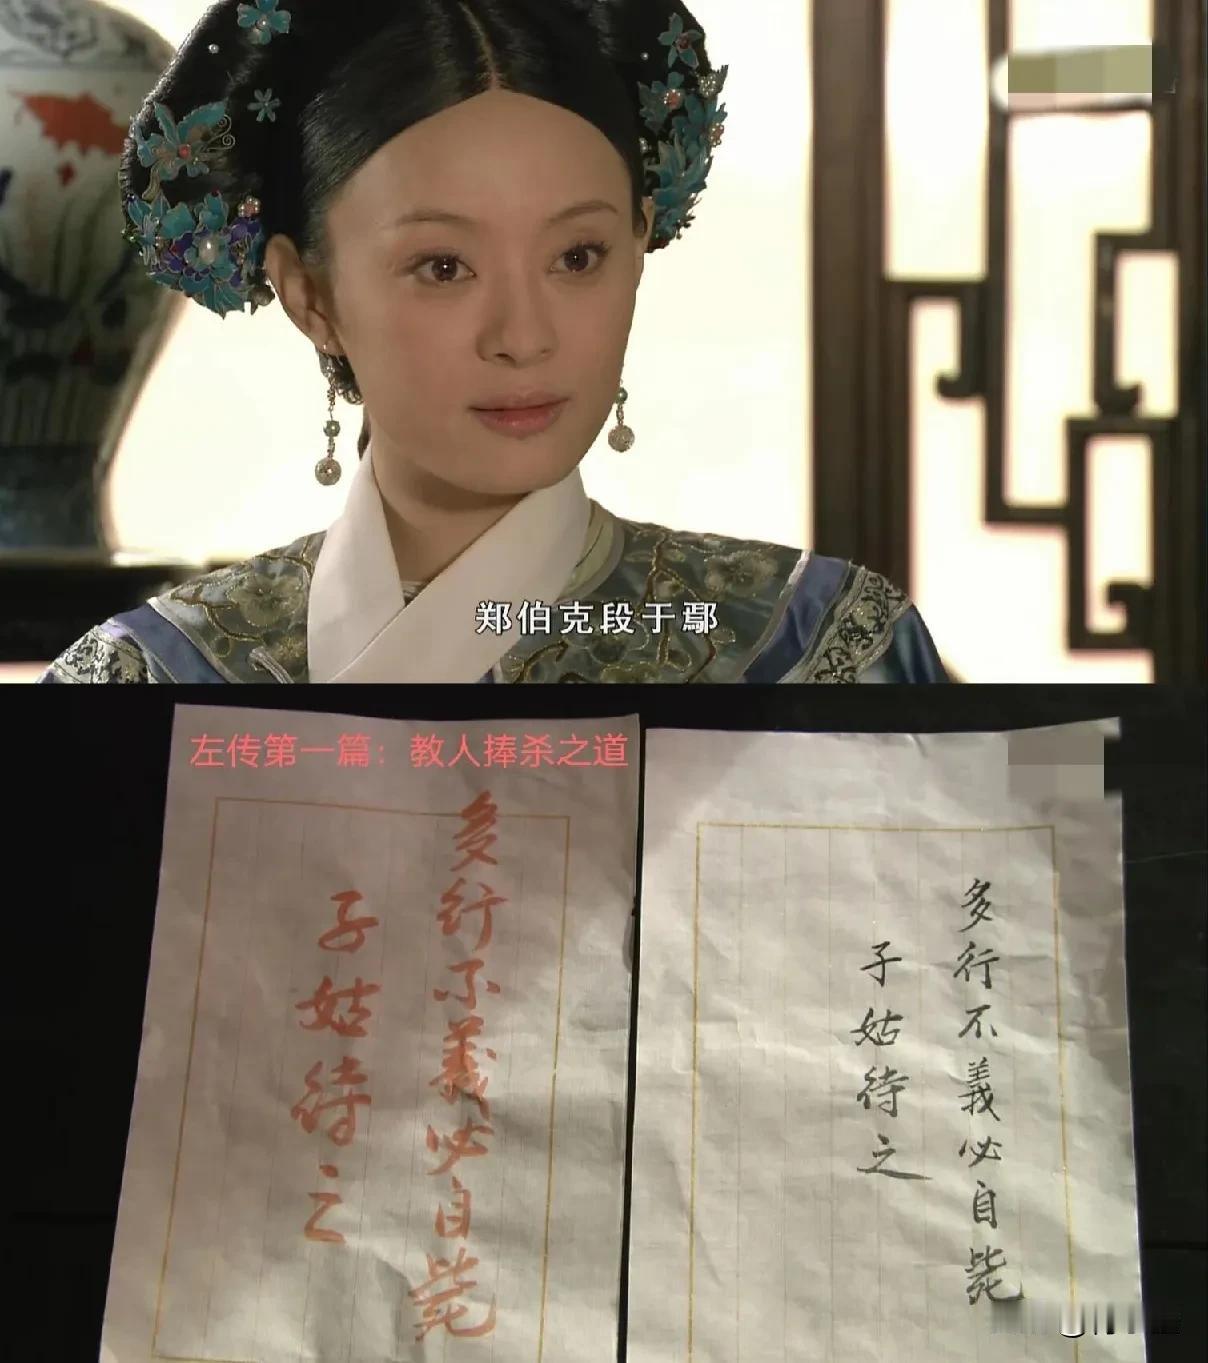 郑伯克段于鄢
左传第一篇：教人捧杀之道
多行不義必自毙
子姑待之
多行不義必自毙
子姑待之